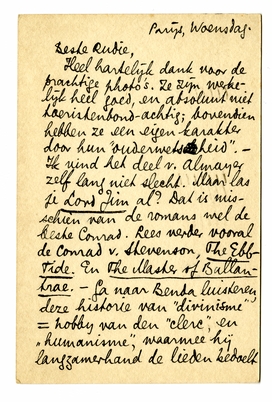 Parijs, Woensdag.
Beste Rudie,
Heel hartelijk dank voor de
prachtige photo's. Ze zijn werke-
lijk heel goed, en absoluut niet
toeristenbond-achtig; bovendien
hebben ze een eigen karakter
door hun "ouderwetsheid". –
Ik vind het deel v. Almayer
zelf lang niet slecht. Maar las
je Lord Jim al? Dat is mis-
schien van de romans wel de
beste Conrad. Lees verder vooral
de Conrad v. Stevenson, The Ebb-
Tide. En The Master of Ballan-
trae. – Ga naar Benda luisteren,
deze historie van "divinisme"
= hobby van den "clerc", en
"humanisme", waarmee hij
langzamerhand de lieden bedoelt